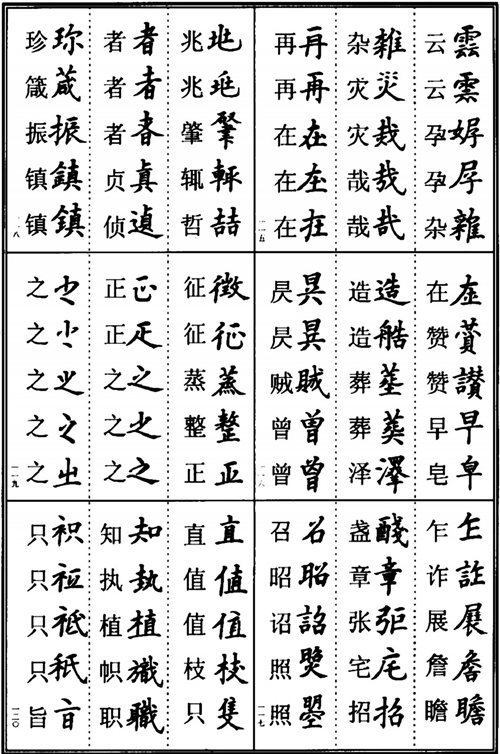 雲雲雜
云云孕孕杂
雜災哉哉
杂灾灾哉哉
再再在在在
再再在在在
在讚早皁
在赞赞早皂
造艁葬澤
造造葬葬泽
賊曽曾
昃昃贼曾曾
乍詐展詹瞻
乍诈展詹瞻
醆章弡宅招
盏章张宅招
召昭詔照曌
召昭诏照照
兆兆肇輒喆
兆兆肇辄哲
者者者真遉
者者者贞侦
珎葴振鎮鎮
珍箴振镇镇
一一五
一一六
一一七
一一八
徴征蒸整正
征征蒸整正
正之之之
正正之之之
之之之㞢
之之之之之
一一九
直値值枝隻
直值值枝只
知執植職
知执植帜职
祇
只只只只旨
一二〇